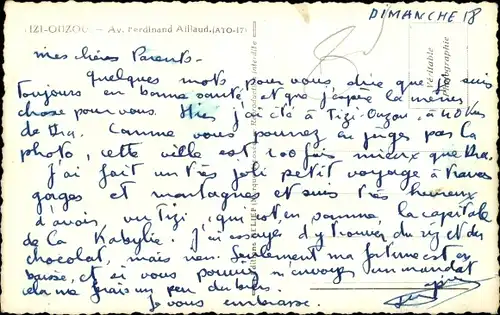 DIMANCHE 18
IZI-OUZOU — Av. Ferdinand Aillaud.(ATO-17)
Véritable
photographie
mes chères Parents -
quelques mots pour vous dire que je suis
toujours en bonne santé et que j'espère la même
chose pour vous. Hier j'ai été à Tizi-Ouzou, à 40 Km
de Dra. Comme vous pourrez en juger par la
photo, cette ville est 100 fois mieux que Dra.
J'ai fait un très joli petit voyage à travers
gorges et montagnes et suis très heureux
d'avoir vu Tizi, qui est en somme, la capitale
de la Kabylie. J'ai essayé d'y trouver du riz et du
chocolat, mais rien. Seulement ma fortune est en
baisse, et si vous pouviez m'envoyer un mandat
cela me ferait un peu du bien.
Je vous embrasse.